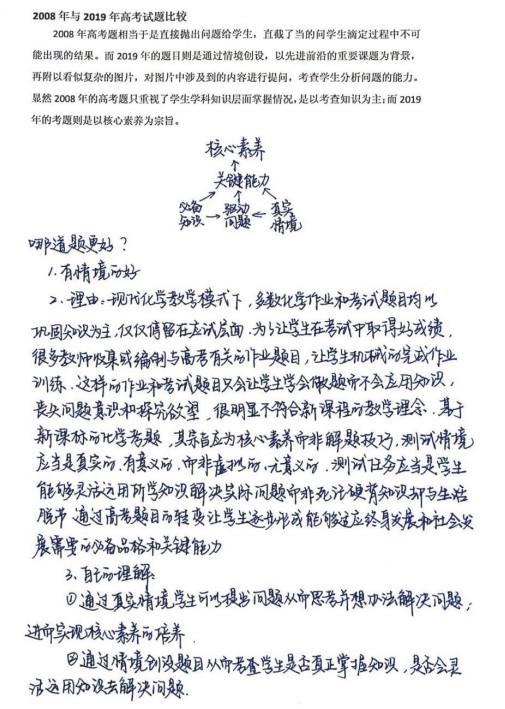 2008 年与 2019 年高考试题比较
2008 年高考题相当于是直接抛出问题给学生，直截了当的问学生滴定过程中不可
能出现的结果。而 2019 年的题目则是通过情境创设，以先进前沿的重要课题为背景，
再附以看似复杂的图片，对图片中涉及到的内容进行提问，考查学生分析问题的能力。
显然 2008 年的高考题只重视了学生学科知识层面掌握情况，是以考查知识为主；而 2019
年的考题则是以核心素养为宗旨。
核心素养
↑
关键能力
必备 → 驱动 ← 真实
知识 问题 情境
哪道题更好？
1. 有情境的好
2. 理由：现代化学教学模式下，多数化学作业和考试题目均以
巩固知识为主，仅仅停留在应试层面，为了让学生在考试中取得好成绩，
很多教师收集或编制与高考有关的作业题目，让学生机械的完成作业
训练．这样的作业和考试题目只会让学生学会做题而不会应用知识，
丧失问题意识和探究欲望，很明显不符合新课程的教学理念．基于
新课标的化学考题，其宗旨应为核心素养而非解题技巧，测试情境
应当是真实的．有意义的，而非虚拟的．无意义的．测试任务应当是学生
能够灵活运用所学知识解决实际问题而非死记硬背知识却与生活
脱节 通过高考题目的转变让学生逐步形成能够适应终身发展和社会发
展需要的必备品格和关键能力
3、自己的理解：
①通过真实情境学生可以提出问题从而思考并想办法解决问题；
进而实现核心素养的培养．
②通过情境创设题目从而考查学生是否真正掌握知识，是否会灵
活运用知识去解决问题．